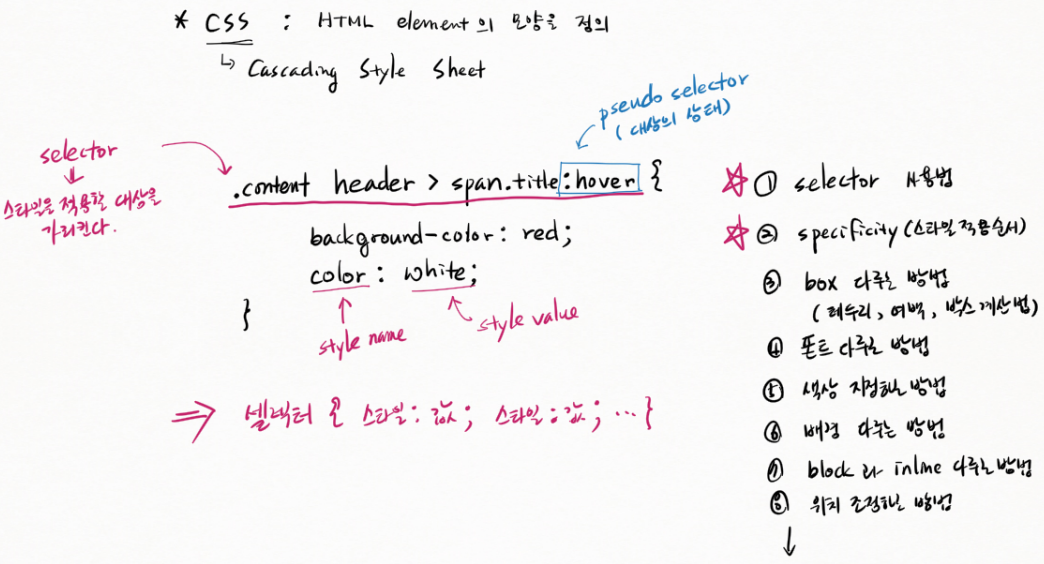 * CSS : HTML element의 모양을 정의
↳ Cascading Style Sheet
pseudo selector
(대상의 상태)
selector
스타일을 적용할 대상을
가리킨다.
.content header > span.title:hover {
background-color: red;
color: white;
}
style name
style value
⇒ 셀렉터 { 스타일: 값; 스타일: 값; … }
☆ ① selector 사용법
☆ ② specificity (스타일 적용순서)
③ box 다루는 방법
(테두리, 여백, 박스계산법)
④ 폰트 다루는 방법
⑤ 색상 지정하는 방법
⑥ 배경 다루는 방법
⑦ block과 inline 다루는 방법
⑧ 위치 조정하는 방법
↓